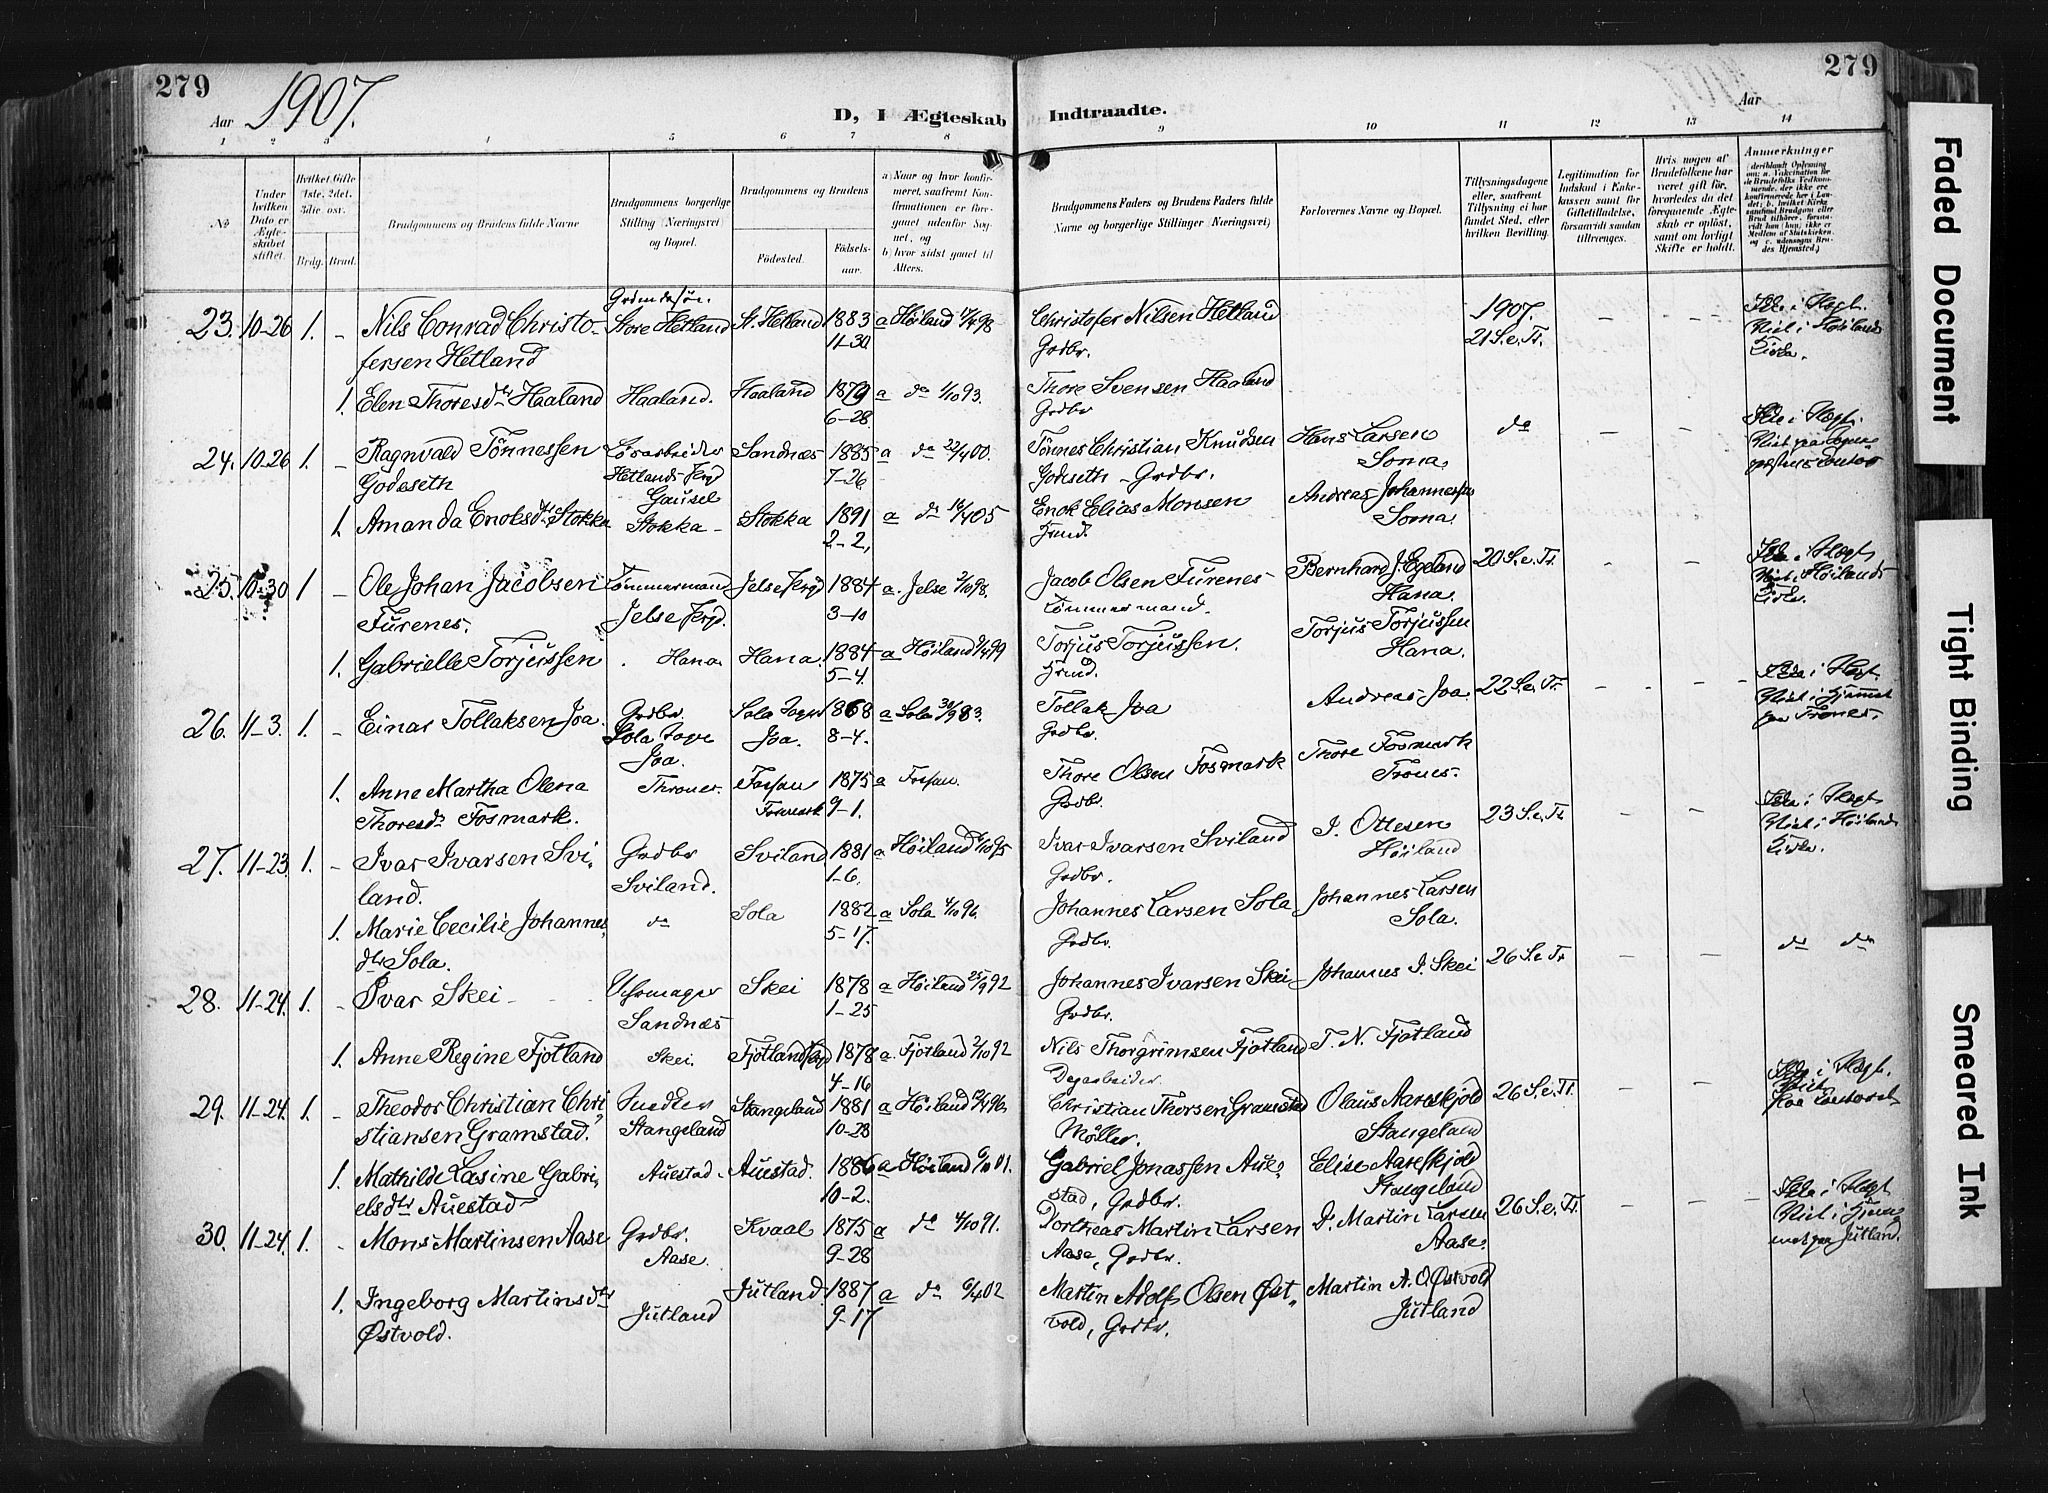 279
1907.
279
Aar
D, I Ægteskab
Indtraadte.
Aar
1 2 3 4 5 6 7 8 9 10 11 12 13 14
No
Under hvilken Dato er Ægteskabet stiftet.
Hvilket Gifte (1ste, 2det, 3die osv.
Brdg. Brud.
Brudgommens og Brudens fulde Navne
Brudgommens borgerlige Stilling (Næringsvei) og Bopæl.
Brudgommens og Brudens
Fødested.
Fødselsaar.
a) Naar og hvor konfirmeret, saafremt Konfirmationen er foregaaet udenfor Sognet, og
b) hvor sidst gaaet til Alters.
Brudgommens Faders og Brudens Faders fulde Navne og borgerlige Stillinger (Næringsvei)
Forlovernes Navne og Bopæl.
Tillysningsdagene eller, saafremt Tillysning ei har fundet Sted, efter hvilken Bevilling.
Legitimation for Indskud i Enkekassen samt for Giftetilladelse, forsaavidt saadan tiltrænges.
Hvis nogen af Brudefolkene har været gift før, hvorledes da det foregaaende Ægteskab er opløst, samt om lovligt Skifte er holdt.
Anmerkninger
23. 10-26 1. - Nils Conrad Christofersen Hetland
Store Hetland St. Hetland 1883 11-30 a Høiland
Christofer Nilsen Hetland Grdbr.
1907. 21 S. e. Tr. - - -
1. Elen Thoresdtr Haaland Haaland. Haaland 1879 6-28 a do 1/10 93.
Thore Svensen Haaland Grdbr
24. 10-26 1. - Ragnvald Tønnessen Godeseth
Løsarbeider Gausel Sandnæs 1885 7-26 a do 22/4 00.
Tønnes Christian Knudsen Godeseth - Grdbr. Hans Larsen Soma. do - -
1. Amanda Enoksdtr Stokka Stokka - Stokka 1891 2-2. a do 16/4 05
Enok Elias Monsen Andreas Johannessen Soma.
25. 10-30 1 - Ole Johan Jacobsen Furenes.
Tømmermand Jelse Prgd. Jelse Prgd 1884 3-10 a. Jelse 2/10 98.
Jacob Olsen Furenes - Tømmermand. Bernhard J. Egeland Hana. 20 S. e. Tr. - -
1. Gabrielle Torjussen Hana Hana. 1884 5-4. a Høiland 9/4 99
Torjus Torjussen. Torjus Torjussen Hana.
26. 11-3. 1. - Einar Tollaksen Joa.
Grdbr. Sola Sogn Joa. Sola Sogn Joa. 1868 8-4. a Sola 30/9 83.
Tollak Joa Grdbr. Andreas Joa. 22 S. e. Tr. - - -
1. Anne Martha Olena Thoresdr Fosmark. Thrones. Forsan Fosmark 1875 9-1. a Forsan.
Thore Olsen Fosmark Grdbr. Thore Fosmark Trones.
27. 11-23 1. - Ivar Ivarsen Sviland.
Grdbr Sviland. Sviland 1881 1-6. a Høiland 6/10 95
Ivar Ivarsen Sviland Grdbr. I. Ottesen Høiland 23 S. e. Tr. - -
1. Marie Cecilie Johannesdtr Sola. do Sola 1882 5-17. a Sola 4/10 96.
Johannes Larsen Sola Grdbr. Johannes Larsen Sola.
28. 11-24. 1. - Ivar Skei
Uhrmager Sandnæs Skei 1878 1-25 a Høiland 25/9 92
Johannes Ivarsen Skei Grdbr. Johannes I. Skei 26 S. e. Tr - - do do
1. Anne Regine Fjotland Skei. Fjotland Prgd 1878 4-16 a. Fjotland 2/10 92
Nils Thorgrimsen Fjotland Dagarbeider. T. N. Fjotland
29. 11-24. 1. - Theodor Christian Christiansen Gramstad.
Snedker Stangeland Stangeland 1881 10-28 a Høiland 12/4 96.
Christian Thorsen Gramstad Møller. Olaus Aareskjold Stangeland 26 S. e. Tr. - -
1. Mathilde Lasine Gabrielsdtr Auestad Auestad. Auestad. 1886 10-2. a Høiland 6/10 01.
Gabriel Jonassen Auestad, Grdbr. Elise Aareskjold Stangeland
30. 11-24. 1. - Mons Martinsen Aase
Grdbr. Aase. Kvaal 1875 9-28 a do 4/10 91.
Dortheas Martin Larsen Aase, Grdbr. D. Martin Larsen Aase. 26 S. e. Tr. - - -
1. Ingeborg Martinsdtr Østvold. Jutland Jutland. 1887 9-17 a do 6/4 02
Martin Adolf Olsen Østvold, Grdbr. Martin A. O Østvold Jutland
Faded Document
Tight Binding
Smeared Ink